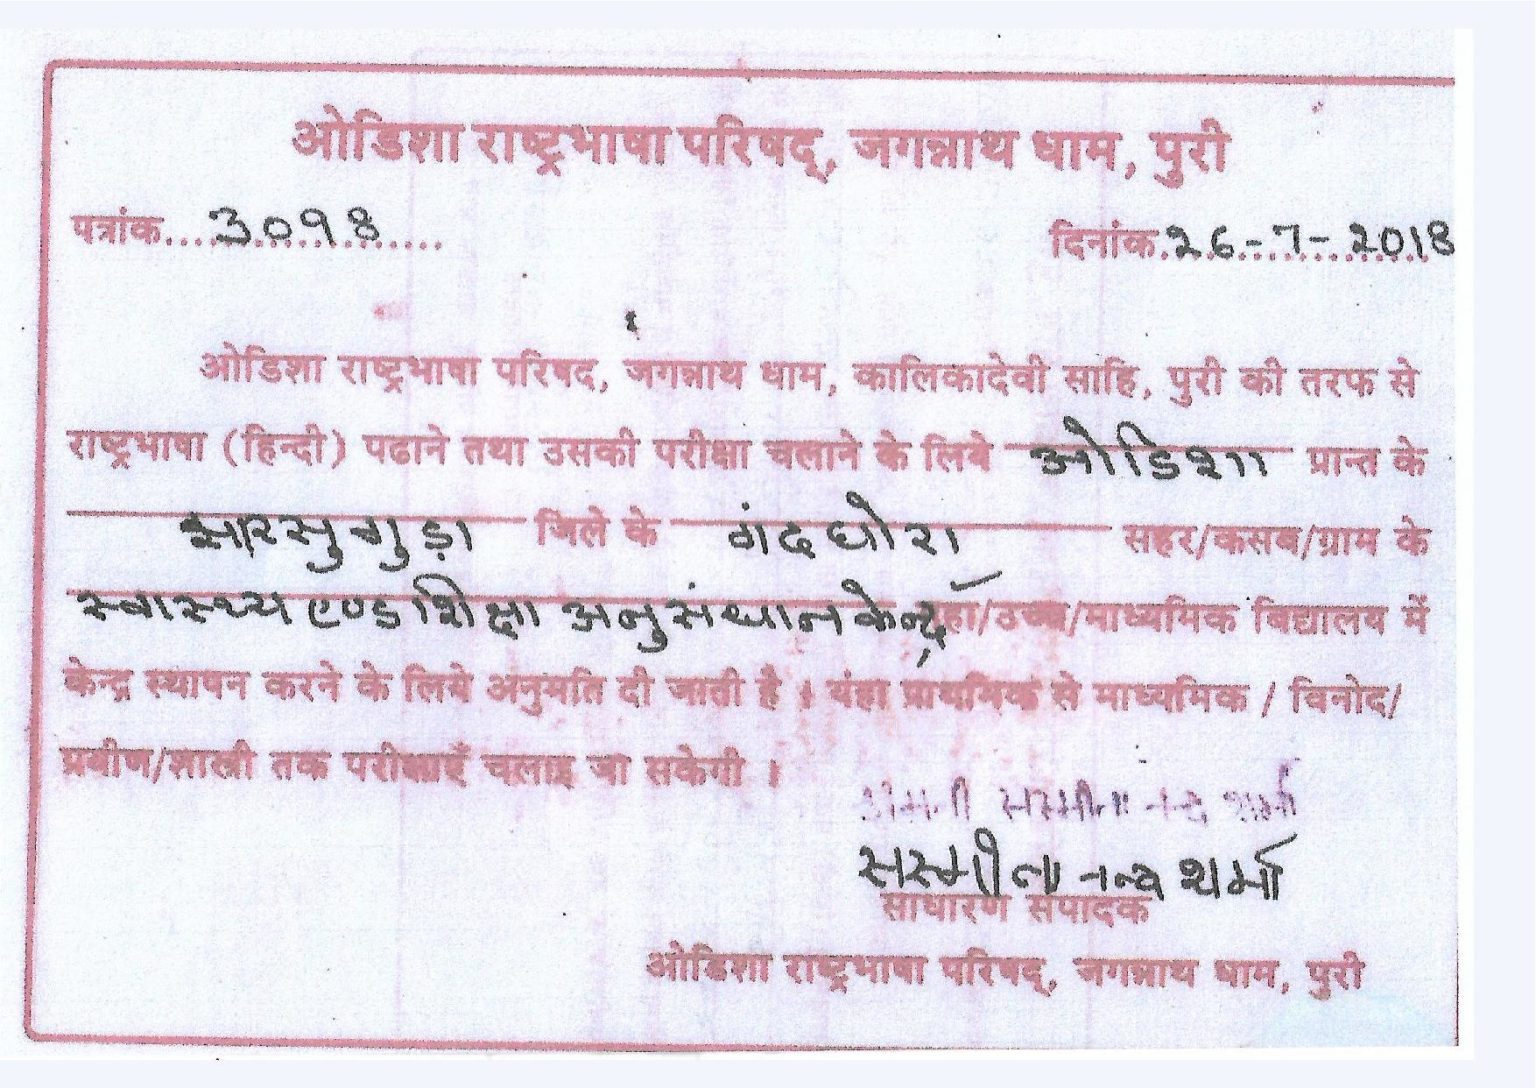 ओडिशा राष्ट्रभाषा परिषद्, जगन्नाथ धाम, पुरी
पत्रांक....3098.... दिनांक.26-7-2018
ओडिशा राष्ट्रभाषा परिषद, जगन्नाथ धाम, कालिकादेवी साहि, पुरी की तरफ से
राष्ट्रभाषा (हिन्दी) पढाने तथा उसकी परीक्षा चलाने के लिये ओडिशा प्रान्त के
झारसुगुड़ा जिले के गंदघोरा सहर/कसब/ग्राम के
स्वास्थ्य एण्ड शिक्षा अनुसंधान केन्द्र महा/उच्च/माध्यमिक बिद्यालय में
केन्द्र स्थापन करने के लिये अनुमति दी जाती है । यंहा प्राथमिक से माध्यमिक / विनोद/
प्रबीण/शास्त्री तक परीक्षाएँ चलाइ जा सकेगी ।
सस्मीता नन्द शर्मा
साधारण संपादक
ओडिशा राष्ट्रभाषा परिषद्, जगन्नाथ धाम, पुरी